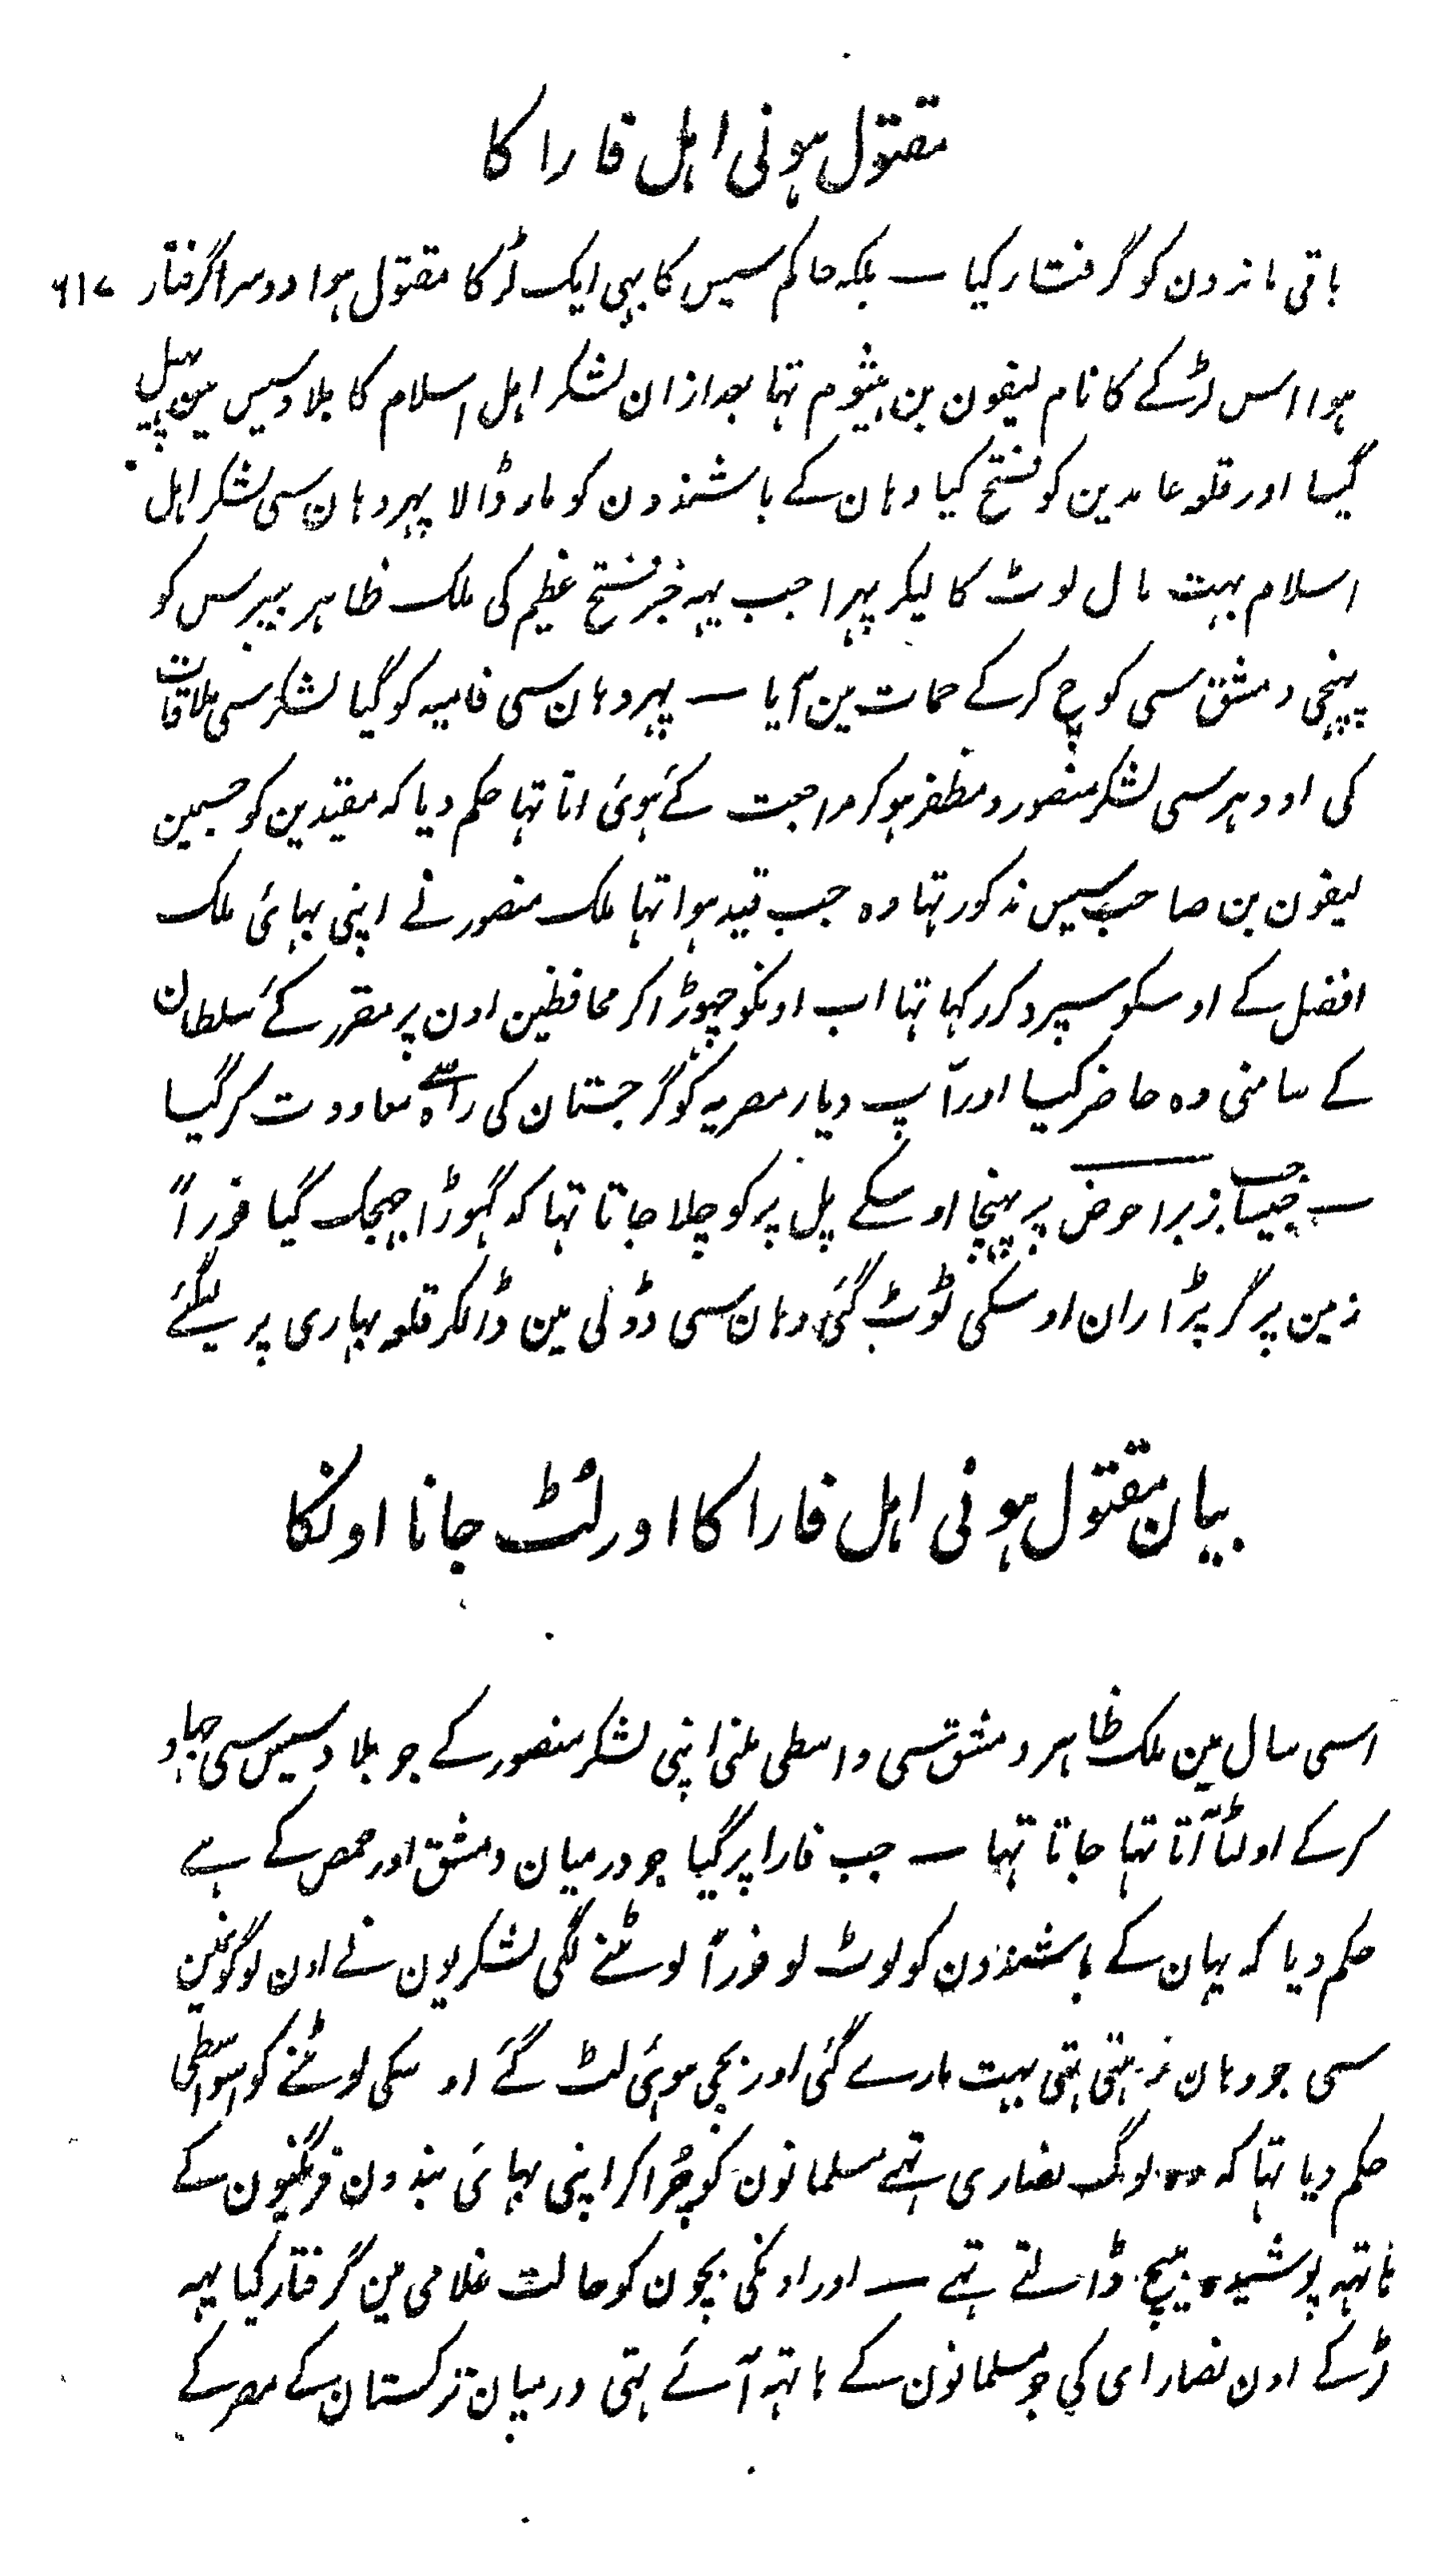 مقتول ہونی اہل قارا کا
باقی ماندون کو گرفتار کیا — بلکہ حاکم سیس کا بہی ایک لڑکا مقتول ہوا دوسرا گرفتار ۶۱۷
ہوا اس لڑکے کا نام لیفون بن ہیثوم تہا بعد ازان لشکر اہل اسلام کا بلاد سیس مین پہیل
گیا اور قلعہ عامدین کو فتح کیا وہان کے باشندون کو مار ڈالا پہر وہان سی لشکر اہل
اسلام بہت مال لوٹ کا لیکر پہرا جب یہہ خبر فتح عظیم کی ملک ظاہر بیبرس کو
پہنچی دمشق سی کوچ کرکے حمات مین آیا — پہر وہان سی فامیہ کو گیا لشکر سی ملاقات
کی اودہر سی لشکر منصور و مظفر ہو کر مراجعت کئے ہوئ اتا تہا حکم دیا کہ مقیدین کو جسمین
لیفون بن صاحب سیس مذکور تہا وہ جب قید ہوا تہا ملک منصور نے اپنی بہائ ملک
افضل کے اوسکو سپرد کر رکہا تہا اب اونکو چہوڑا کر محافظین اون پر مقرر کئے سلطان
کے سامنی وہ حاضر کیا اور آپ دیار مصریہ کو گرجستان کی راہ سے معاودت کر گیا
— جب جیسا زبرا حوض پر پہنچا اوسکے پل پر کو چلا جاتا تہا کہ گہوڑا جہجک گیا فوراً
زمین پر گر پڑا ران اوسکی ٹوٹ گئی وہان سی ڈولی مین ڈالکر قلعہ پہاری پر لیگئے
بیان مقتول ہونی اہل قارا کا اور لُٹ جانا اونکا
اسی سال مین ملک ظاہر دمشق سی واسطی ملنی اپنی لشکر منصور کے جو بلاد سیس سی جہاد
کرکے اولٹا آتا تہا جاتا تہا — جب قارا پر گیا جو درمیان دمشق اور حمص کے ہے
حکم دیا کہ یہان کے باشندون کو لوٹ لو فوراً لوٹنے لگی لشکریون نے اون لوگونمین
سی جو وہان رہتی تہی بہت مارے گئی اور بچی ہوئ لٹ گئے اوسکی لوٹنے کو اسواسطی
حکم دیا تہا کہ وہ لوگ نصاری تہے مسلمانون کو چُرا کر اپنی بہائ بندون فرنگیون کے
ہاتہہ پوشیدہ بیچ ڈالتے تہے — اور اونکی بچون کو حالت غلامی مین گرفتار کیا یہہ
لڑکے اون نصارای کی جو مسلمانون کے ہاتہہ آئے تہی درمیان ترکستان کے مصر کے